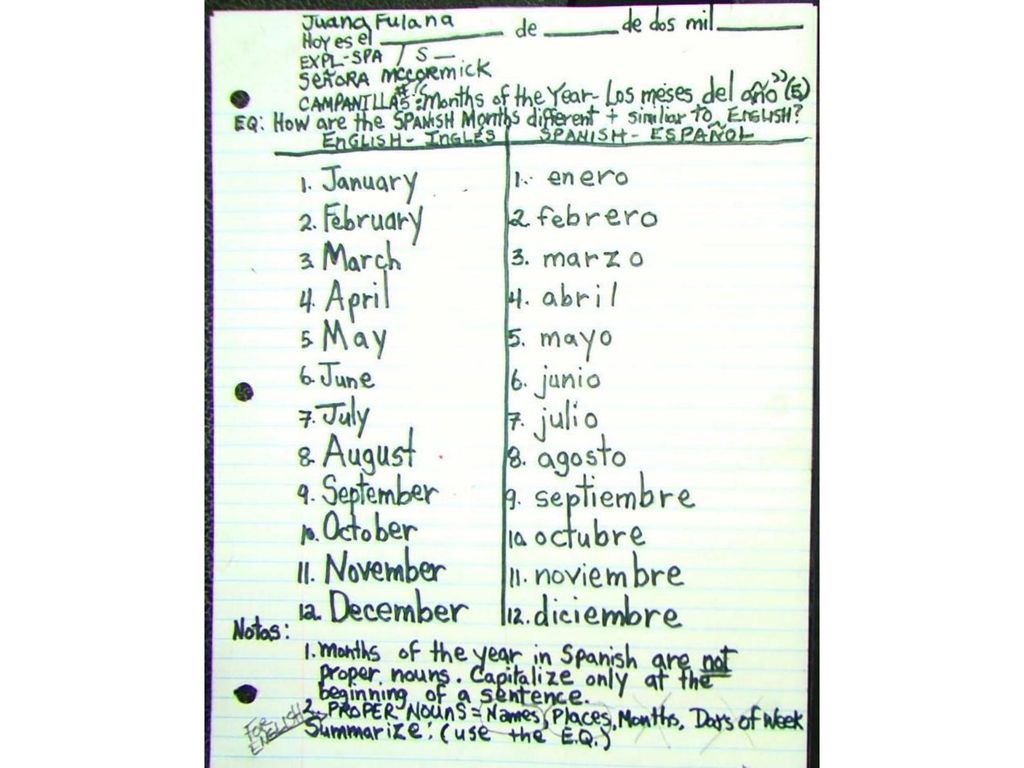 Juana Fulana
Hoy es el ________ de ________ de dos mil ________
EXPL-SPA / S —
SEÑORA McCORMICK
CAMPANILLAS: "Months of the Year - Los meses del año" (E)
EQ: How are the SPANISH Months different + similiar to ENGLISH?
ENGLISH - INGLÉS SPANISH - ESPAÑOL
1. January 1. enero
2. February 2. febrero
3. March 3. marzo
4. April 4. abril
5. May 5. mayo
6. June 6. junio
7. July 7. julio
8. August 8. agosto
9. September 9. septiembre
10. October 10. octubre
11. November 11. noviembre
12. December 12. diciembre
Notas:
1. months of the year in Spanish are not
proper nouns. Capitalize only at the
beginning of a sentence.
FOR ENGLISH 2. PROPER NOUNS = Names, Places, Months, Days of Week
Summarize: (use the E.Q.)